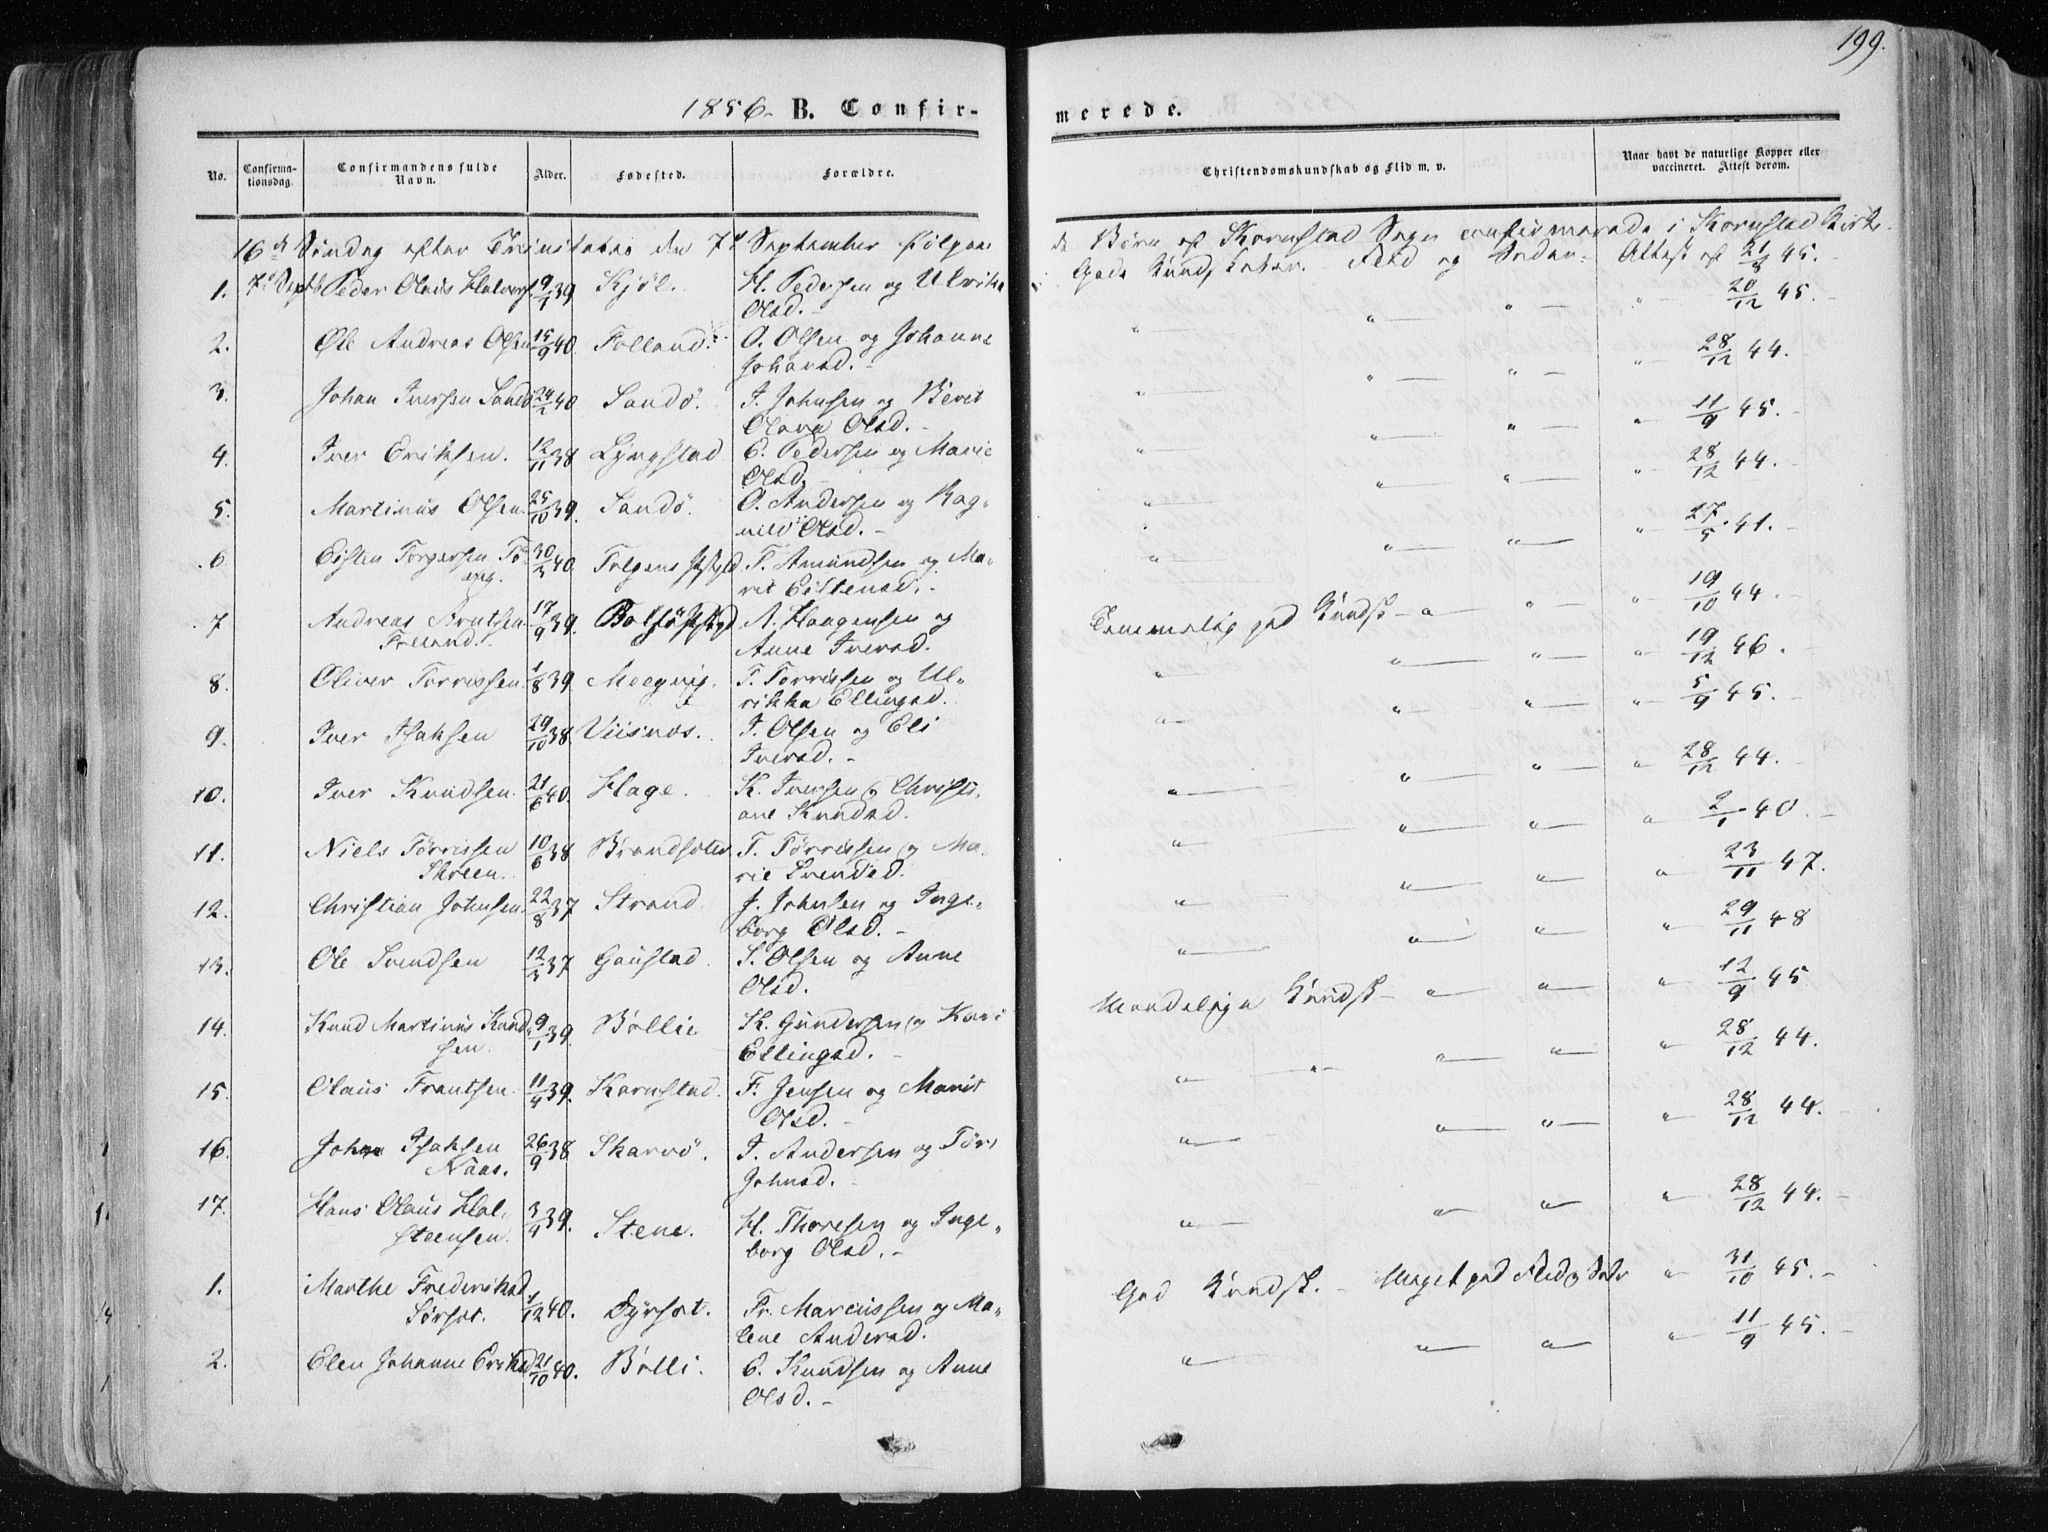 199.
1856. B. Confir-
merede.
No.
Confirma-
tionsdag.
Confirmandens fulde
Navn.
Alder.
Fødested.
Forældre.
Christendomskundskab og Flid m. v.
Naar havt de naturlige Kopper eller
vaccineret. Attest derom.
16de Søndag efter Trinitatis den 7de September følgen-
de Børn af Kornstad Sogn confirmerede i Kornstad Kirke.
1. 7de Septb Peder Olaus Halvors. 9/1 39 Kjöl. H. Pedersen og Ulrikke
Olsd. -
Gode Kundskaber. Flid og Orden. Attest af 21/8 45. -
2. Ole Andreas Olsen 15/9 40. Folland. O. Olsen og Johanne
Johansd. -
" " " " 20/12 45. -
3. Johan Iversen Sandö 24/2 40 Sandö. I. Johnsen og Beret
Olava Olsd. -
" " " " 28/12 44.
4. Iver Eriksen. 12/11 38 Lyngstad E. Pedersen og Marie
Olsd. -
" " " " 11/9 45. -
5. Martinus Olsen. 25/10 39. Sandö. O. Andersen og Rag-
nild Olsd. -
" " " " 28/12 44.
6 Eisten Torgersen 30/3 40. T. Amundsen og Ma-
rit Eistensd. -
" " " " 27/5 41. -
7 Andreas Arntsen 17/9 39. Bolsö Pstgjd A. Haagensen og
Anne Iversd. -
Temmelig god Kundsk - " " " 19/10 44. -
8. Oliver Torrissen. 1/8 39 T. Torrissen og Ul-
rikka Ellingsd. -
" " " " 19/12 46.
9. Iver Isaksen 29/10 38. Viisnæs. I. Olsen og Eli
Iversd. -
" " " " 5/9 45.
10. Iver Knudsen. 21/6 40. Hage. K. Iversen og Christi-
ane Knudsd.
" " " " 28/12 44.
11. Niels Törrissen 10/6 38 T. Törrissen og Ma-
rie Svendsd.
" " " " 2/1 40. -
12. Christian Johnsen. 22/8 37 Strand. J. Johnsen og Inge-
borg Olsd. -
" " " " 23/11 47.
13. Ole Svendsen 12/3 37 Gaustad. S. Olsen og Anne
Olsd.
" " " " 29/11 48
14. Knud Martinus Knud- 9/1 39. Bollie K. Gundersen og Kari
sen. Ellingsd. -
Maadelige Kundsk - " " " 12/9 45
15. Olaus Frantsen. 11/4 39. Kornstad. F. Jensen og Marit
Olsd. -
" " " " 28/12 44.
16. Johan Isaksen 26/9 38 Skarvö. I. Andersen og
Naas. Johnsd. -
" " " " 28/12 44.
17. Hans Olaus Hal- 3/9 39. Stene. H. Thoresen og Inge-
steensen. borg Olsd. -
" " " " 28/12 44.
1. Marthe Frederiksd 1/12 40. Dyrset. Fr. Marcussen og Ma-
lene Andersd.
God Kundsk. - Meget god Flid og " 31/10 45. -
2. Elen Johanne Eriksd 21/10 40. Bolli. E. Knudsen og Anne
Olsd. -
" " " " 11/9 45. -